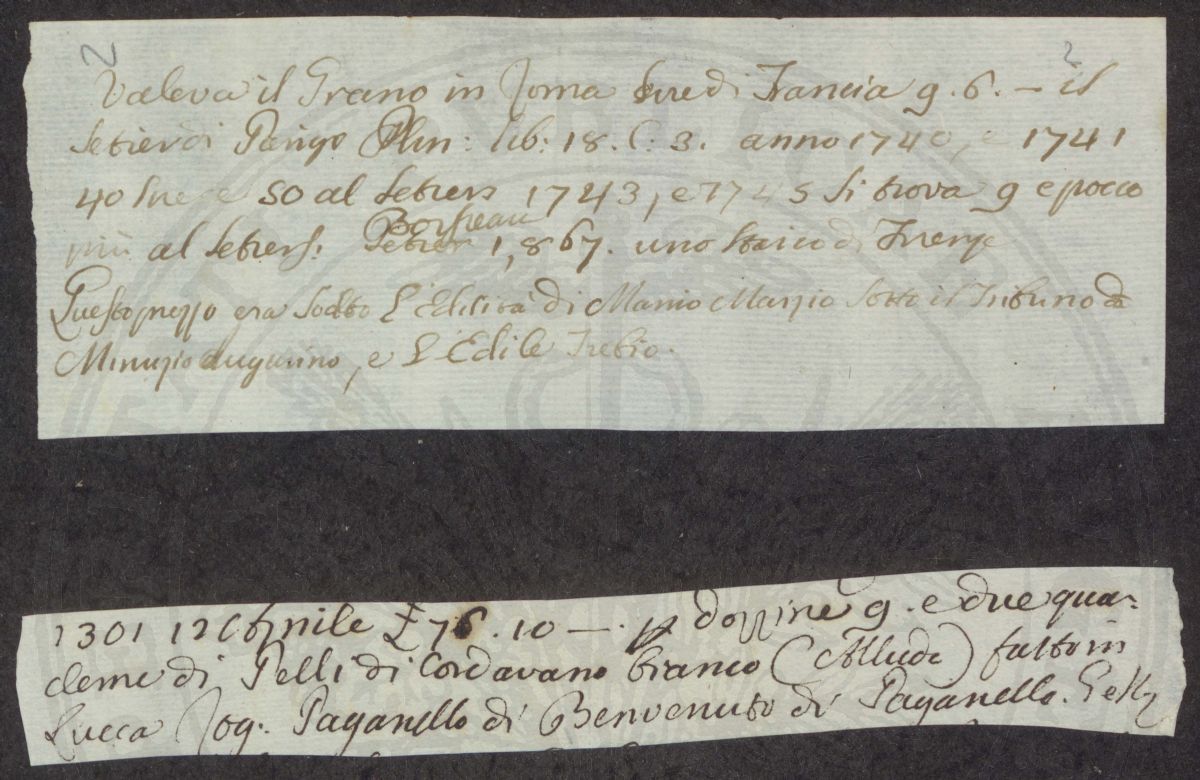 2 2
Valeva il Grano in Roma lire di Francia 9. 6. – il
setier di Parigi Plin: lib: 18. C. 3. anno 1740, e 1741
40 lire e 50 al Setiers 1743, e 1745 si trova 9 e pocco
più al Setiers: Setier Boisseau 1,867. uno staico di Firenze
Questo prezzo era sotto l'Edilità di Manio Marzio sotto il Tribuno di
Minuzio augurino, e l'Edile Trebio.
1301 12 Aprile £ 76. 10 –. p dozzine 9. e due qua-
derne di Pelli di Cordavano bianco (Allude) fatto in
Lucca Rog. Paganello di Benvenuto di Paganello.